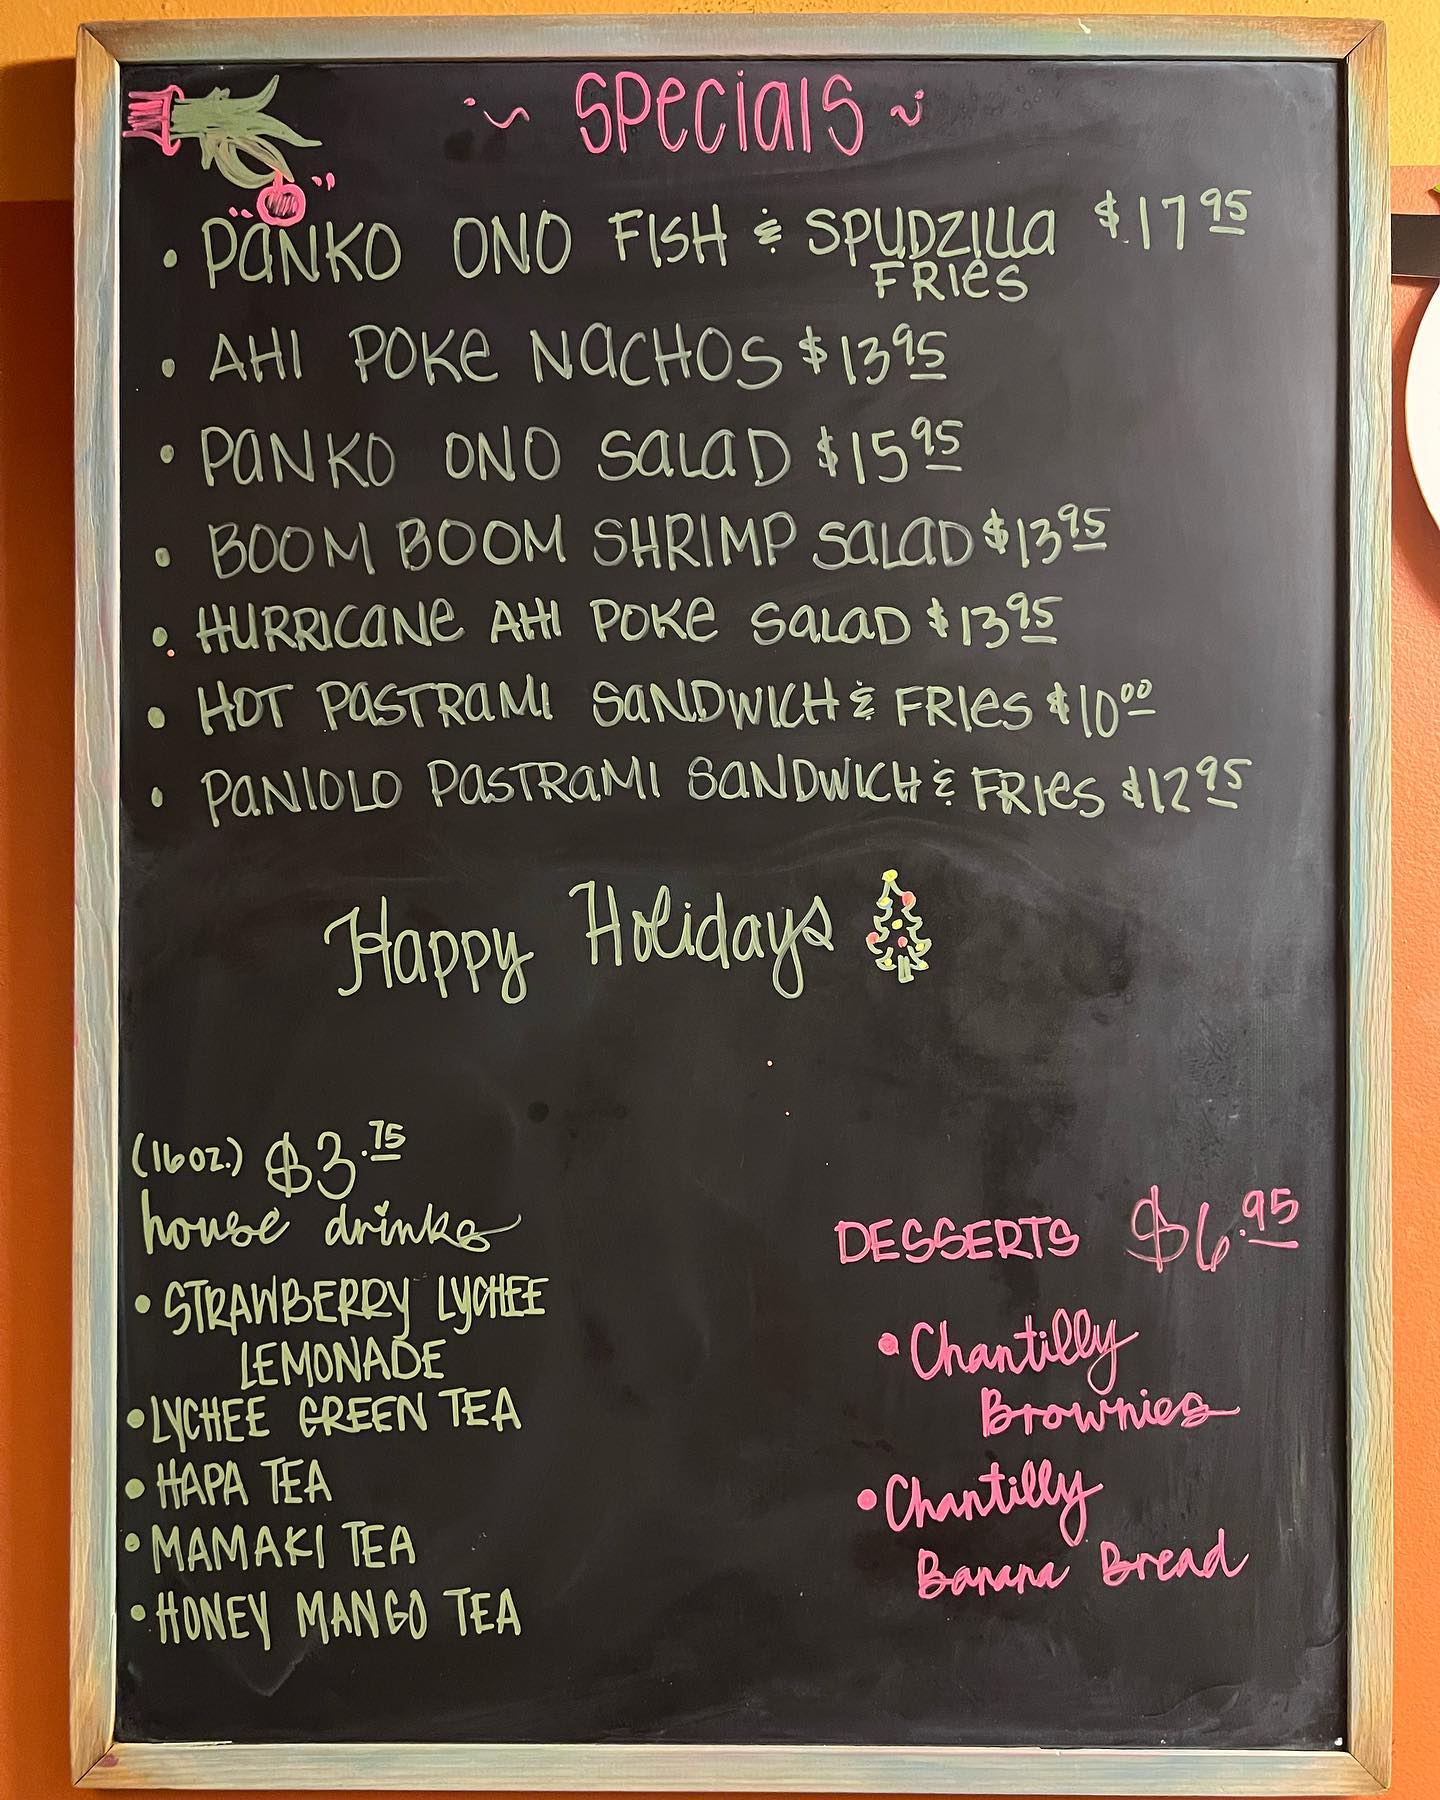 ~ Specials ~
• PANKO ONO FISH & SPUDZILLA $17.95
FRIES
• AHI POKE NACHOS $13.95
• PANKO ONO SALAD $15.95
• BOOM BOOM SHRIMP SALAD $13.95
• HURRICANE AHI POKE SALAD $13.95
• HOT PASTRAMI SANDWICH & FRIES $10.00
• PANIOLO PASTRAMI SANDWICH & FRIES $12.95
Happy Holidays
(16 oz.) $3.75
house drinks
• STRAWBERRY LYCHEE
LEMONADE
• LYCHEE GREEN TEA
• HAPA TEA
• MAMAKI TEA
• HONEY MANGO TEA
DESSERTS $6.95
• Chantilly
Brownies
• Chantilly
Banana Bread